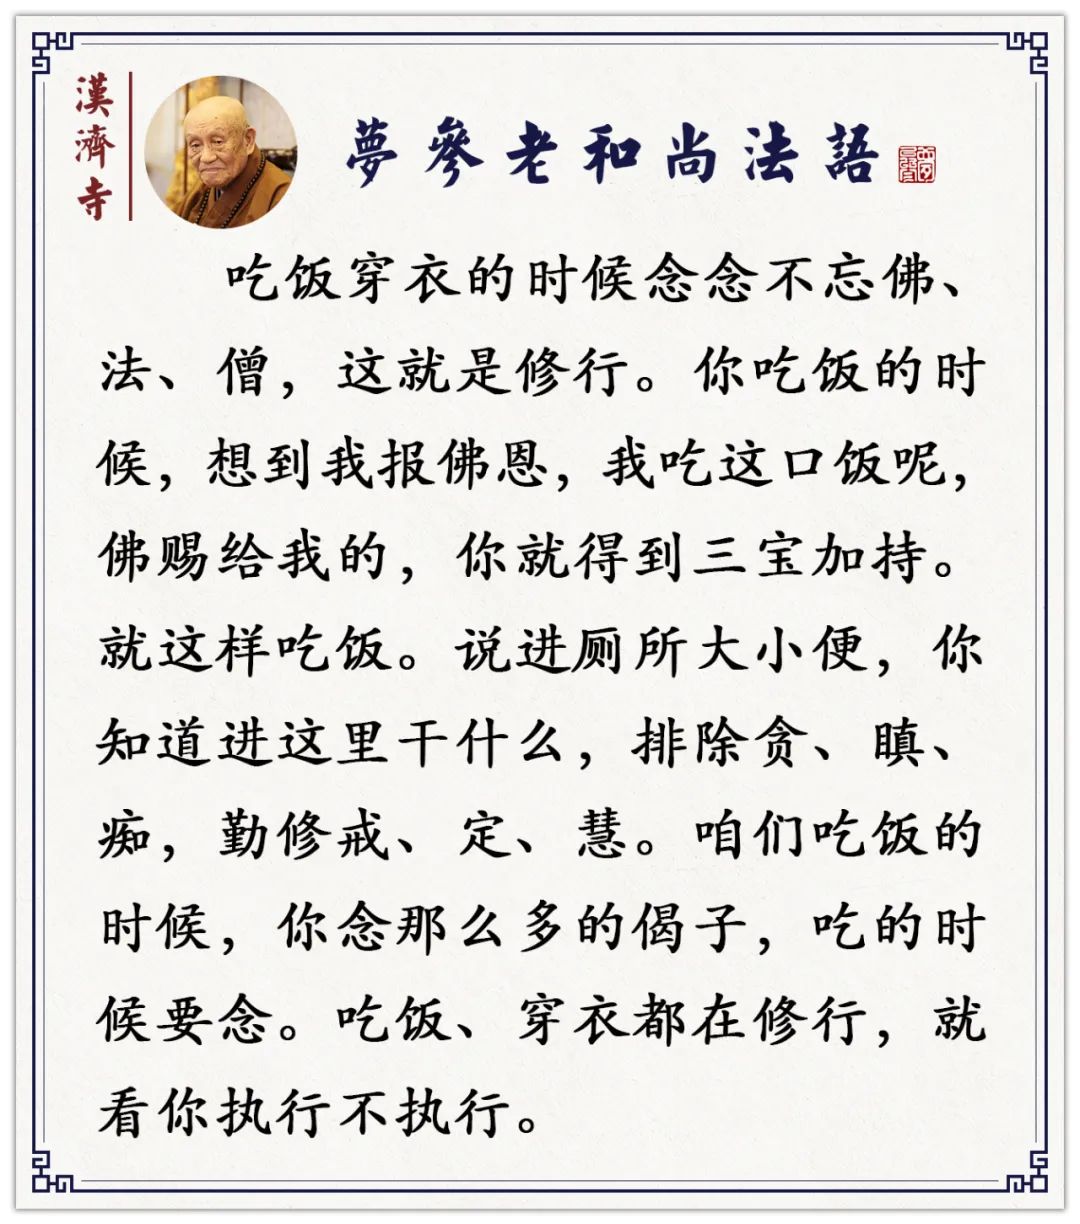 漢濟寺
夢參老和尚法語
吃饭穿衣的时候念念不忘佛、
法、僧，这就是修行。你吃饭的时
候，想到我报佛恩，我吃这口饭呢，
佛赐给我的，你就得到三宝加持。
就这样吃饭。说进厕所大小便，你
知道进这里干什么，排除贪、瞋、
痴，勤修戒、定、慧。咱们吃饭的
时候，你念那么多的偈子，吃的时
候要念。吃饭、穿衣都在修行，就
看你执行不执行。